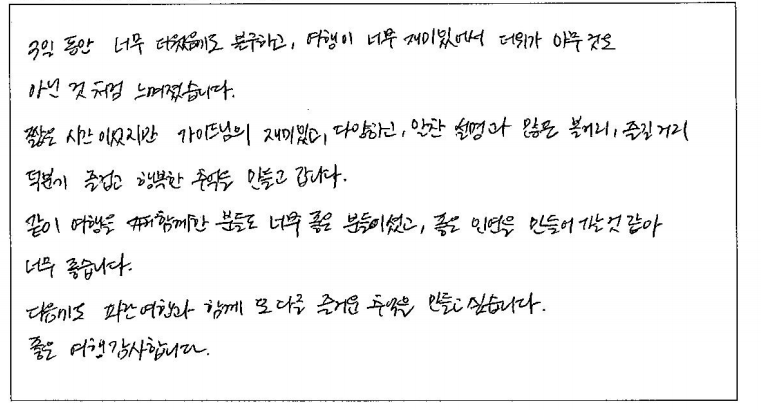 3일 동안 너무 더웠음에도 불구하고, 여행이 너무 재미있어서 더위가 아무것도
아닌 것처럼 느껴졌습니다.
짧은 시간이었지만 가이드님의 재미있고, 다양하고, 알찬 설명과 많은 볼거리, 즐길거리
덕분에 즐겁고 행복한 추억을 만들고 갑니다.
같이 여행을 함께한 분들도 너무 좋은 분들이셨고, 좋은 인연을 만들어 가는 것 같아
너무 좋습니다.
다음에도 파란여행과 함께 또 다른 즐거운 추억을 만들고 싶습니다.
좋은 여행 감사합니다.